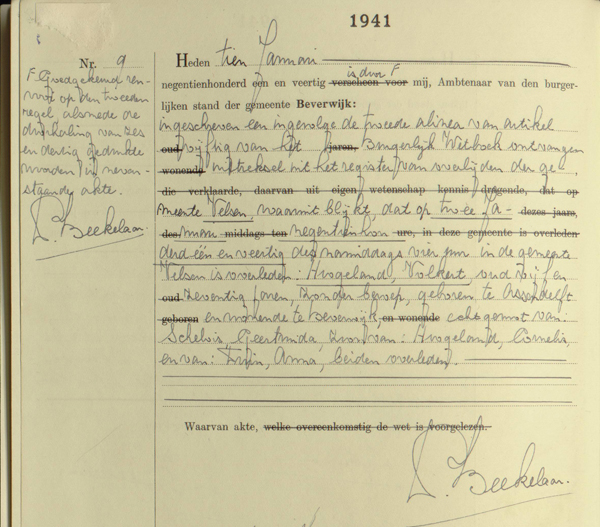 1941
Nr. 9
F Goedgekeurd ren-
vooi op den tweeden
regel, alsmede de
doorhaling van zes
en dertig gedrukte
woorden in neven-
staande akte.
Beekelaar.
Heden tien Januari
is door F
negentienhonderd een en veertig verscheen voor mij, Ambtenaar van den burger-
lijken stand der gemeente Beverwijk:
ingeschreven een ingevolge de tweede alinea van artikel
oud vijftig van het jaren, Burgerlijk Wetboek ontvangen
wonende uittreksel uit het register van overlijden der ge-
die verklaarde, daarvan uit eigen wetenschap kennis dragende, dat op
meente Velsen, waaruit blijkt, dat op twee Ja- dezes jaars,
des nuari middags ten negentienhon- ure, in deze gemeente is overleden
derd één en veertig des namiddags vier uur in de gemeente
Velsen is overleden: Hoogeland, Volkert, oud vijf en
oud zeventig jaren, zonder beroep, geboren te Assendelft
geboren en wonende te Beverwijk, en wonende echtgenoot van:
Schelvis, Geertruida, zoon van: Hoogeland, Cornelis,
en van: Anna, beiden overleden.
Waarvan akte, welke overeenkomstig de wet is voorgelezen.
Beekelaar.